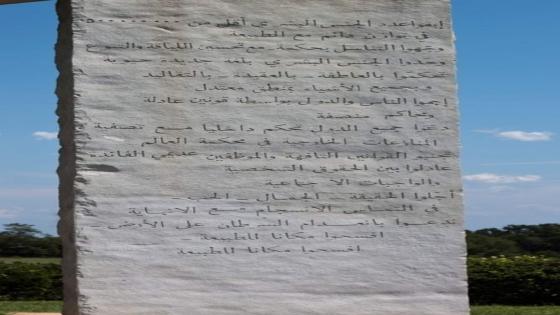 ابقوا عدد الجنس البشري أقل من ٥٠٠٠٠٠٠٠٠
في توازن دائم مع الطبيعة
وجهوا التناسل بحكمة مع تحسين اللياقة والتنوع
وحدوا الجنس البشري بلغة جديدة حيوية
تحكموا بالعاطفة - بالعقيدة - بالتقاليد
وبجميع الأشياء بمنطق معتدل
احموا الناس والدول بواسطة قوانين عادلة
ومحاكم منصفة
دعوا جميع الدول تحكم داخليا مع تصفية
المنازعات الخارجية في محكمة العالم
تجنبوا القوانين التافهة والموظفين عديمي الفائدة
عادلوا بين الحقوق الشخصية
والواجبات الاجتماعية
اجلوا الحقيقة - الجمال - الحب
في التماس الانسجام مع اللانهاية
السرطان على الأرض
افسحوا مكانا للطبيعة
افسحوا مكانا للطبيعة